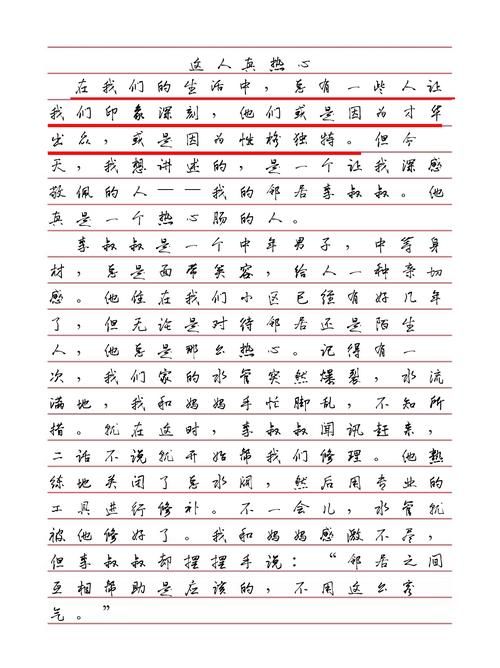 这人真热心
在我们的生活中，总有一些人让
我们印象深刻，他们或是因为才华
出众，或是因为性格独特。但今
天，我想讲述的，是一个让我深感
敬佩的人——我的邻居李叔叔。他
真是一个热心肠的人。
李叔叔是一个中年男子，中等身
材，总是面带笑容，给人一种亲切
感。他住在我们小区已经有好几年
了，但无论是对待邻居还是陌生
人，他总是那么热心。记得有一
次，我们家的水管突然爆裂，水流
满地，我和妈妈手忙脚乱，不知所
措。就在这时，李叔叔闻讯赶来，
二话不说就开始帮我们修理。他熟
练地关闭了总水阀，然后用专业的
工具进行修补。不一会儿，水管就
被他修好了。我和妈妈感激不尽，
但李叔叔却摆摆手说：“邻居之间
互相帮助是应该的，不用这么客
气。”